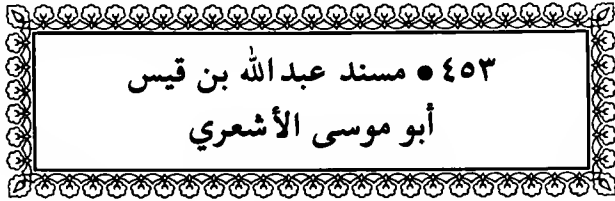 ٤٥٣ • مسند عبدالله بن قيس
أبو موسى الأشعري